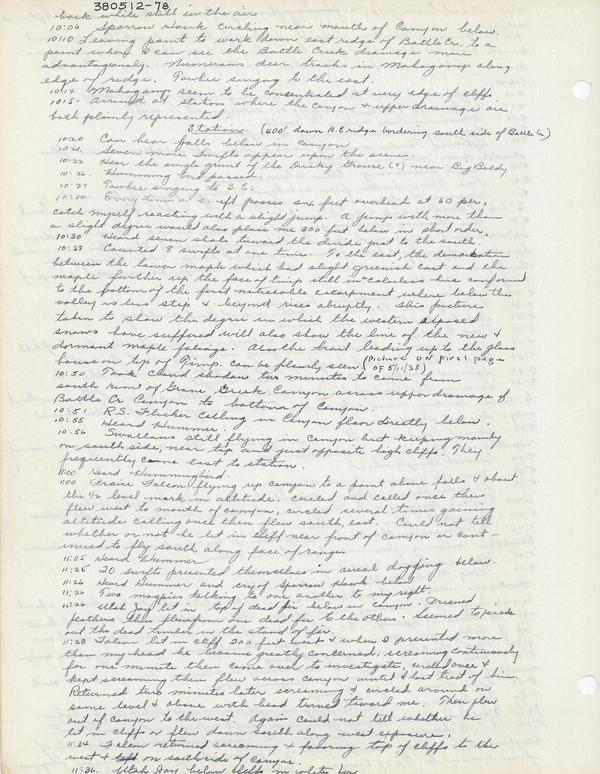 380512-78
back white still in the air.
10:06 Sparrow Hawk circling near mouth of Canyon below.
10:10 Leaving point to work down east ridge of Battle Cr. to a
point where I can see the Battle Creek drainage more
advantageously. Numerous deer tracks in Mahogany along
edge of ridge. Towhee singing to the east.
10:14 Mahogany seem to be concentrated at very edge of cliffs
10:15 Arrived at station where the canyon & upper drainage are
both plainly represented.
Station (400' down N.E ridge bordering south side of Battle Cr)
10:20 Can hear falls below in canyon
10:21 Seven more Swifts appear upon the scene.
10:22 Hear the single grunt of the Dusky Grouse (?) near Big Baldy
10:26 Humming bird passed.
10:27 Towhee singing to S.E.
10:30 Every time a swift passes six feet overhead at 60 per,
catch myself reacting with a slight jump. A jump with more than
a slight degree would also place me 300 feet below in short order.
10:30 Heard seven shots toward the divide just to the south.
10:38 Counted 8 swifts at one time. To the east, the demarkation
between the lower maple which had slight greenish cast and the
maple further up the face of Timp still in colorless hue conformed
to the bottom of the first noticeable escarpment where below the
valley is less steep & beyond rises abruptly. This picture
taken to show the degree in which the western exposed
snows have suffered will also show the line of the new &
dormant maple foliage. Also the trail leading up to the glass
house on top of Timp. can be plainly seen (Picture on first page OF 5/11/38)
10:50 Took cloud shadow two minutes to come from
south rim of Grove Creek Canyon across upper drainage of
Battle Cr Canyon to bottom of Canyon.
10:51 R.S. Flicker calling in Canyon floor directly below.
10:55 Heard Hummer.
10:56 Swallows still flying in Canyon but keeping mainly
on south side, near top and just opposite high cliffs. They
frequently come east to station.
11:00 Heard Hummingbird.
11:00 Praire Falcon flying up canyon to a point above falls & about
the ½ level mark in altitude. circled and called once then
flew west to mouth of canyon, circled several times gaining
altitude calling once then flew south, east. Could not tell
whether or not he lit in cliff near front of canyon or cont-
inued to fly south along face of range.
11:05 Heard Hummer
11:25 20 swifts presented themselves in areal dogging below.
11:26 Heard Hummer and cry of Sparrow Hawk below
11:26 Two magpies talking to one another to my right.
11:26 Utah Jay lit in top of dead fir below in canyon. Preened
feathers then flew from one dead fir to the others. Seemed to pick
out the dead timber in the stand of fir.
11:28 Falcon lit in cliff 200 feet west & when I presented more
than my head he became greatly concerned, screaming continuously
for one minute then came over to investigate, circled once &
kept screaming then flew across canyon until I lost trace of him.
Returned two minutes later screaming & circled around on
same level & above with head turned toward me. Then flew
out of canyon to the west. Again could not tell whether he
lit in cliff or flew down south along west exposure.
11:34 Falcon returned screaming & favoring top of cliffs to the
west & left on southside of canyon.
11:36 Utah Jay below cliffs in white fir